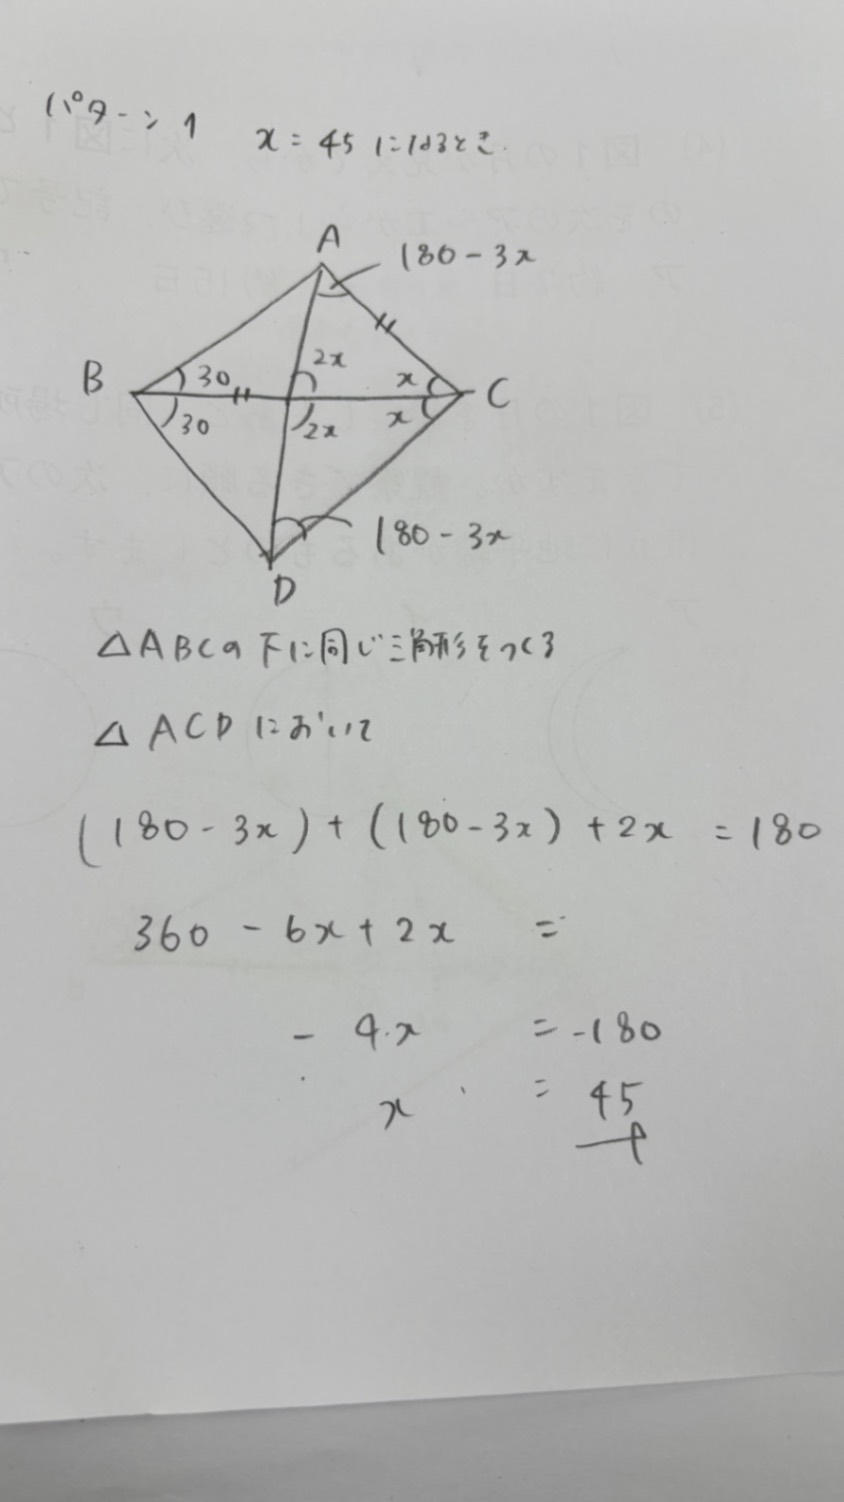 パターン1
x=45になるとき
A
180-3x
B
30
2x
x
C
30
2x
x
180-3x
D
△ABCの下に同じ三角形をつくる
△ACDにおいて
(180-3x)+(180-3x)+2x =180
360-6x+2x =
-4x =-180
x =45